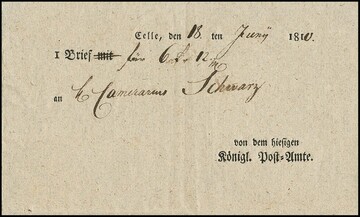 Celle, den 18 ten Juny 1810.
1 Brief mit für 6
an H Camerarius Schwarz
von dem hiesigen
Königl. Post-Amte.